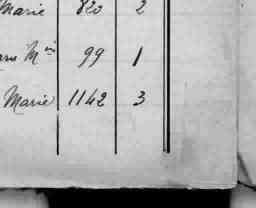 Marie 820 2
Mie 99 1
Marie 1142 3